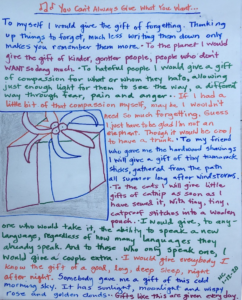 If You Can't Always Give What You Want...
To myself I would give the gift of forgetting. Thinking
up things to forget, much less writing them down only
makes you remember them more. • To the planet I would
give the gift of kinder, gentler people, people who don't
want so dang much. • To hateful people I would give a gift
of compassion for what or whom they hate, allowing
just enough light for them to see the way, a different
way through fear, pain and anger. • If I had a
little bit of that compassion myself, maybe I wouldn't
need so much forgetting. Guess
I just have to be glad I'm not an
elephant. Though it would be cool
to have a trunk. • To my friend
who gave me the hardwood shavings
I will give a gift of tiny tamarack
sticks, gathered from the path
all year long after windstorms.
• To the cats I will give little
gifts of catnip as soon as I
have sewed it, with tiny, tiny,
catproof stitches into a woolen
pouch. • I would give, to any-
one who would take it, the ability to speak a new
language, regardless of how many languages they
already speak. And to those who only speak one,
would give a couple extra. • I would give everybody I
know the gift of a good, long, deep sleep, night
after night. Somebody gave me a gift of this cold
morning sky. It has sunlight, moonlight and wispy
rose and golden clouds. Gifts like this are given every day.